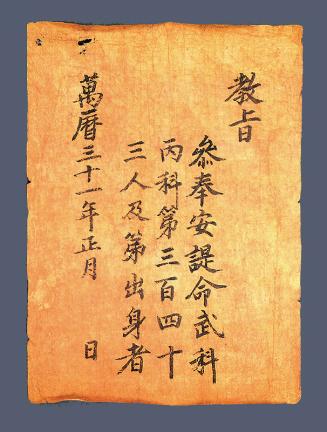 教旨
叅奉安諟命武科
丙科第三百四十
三人及第出身者
萬曆三十一年正月　日